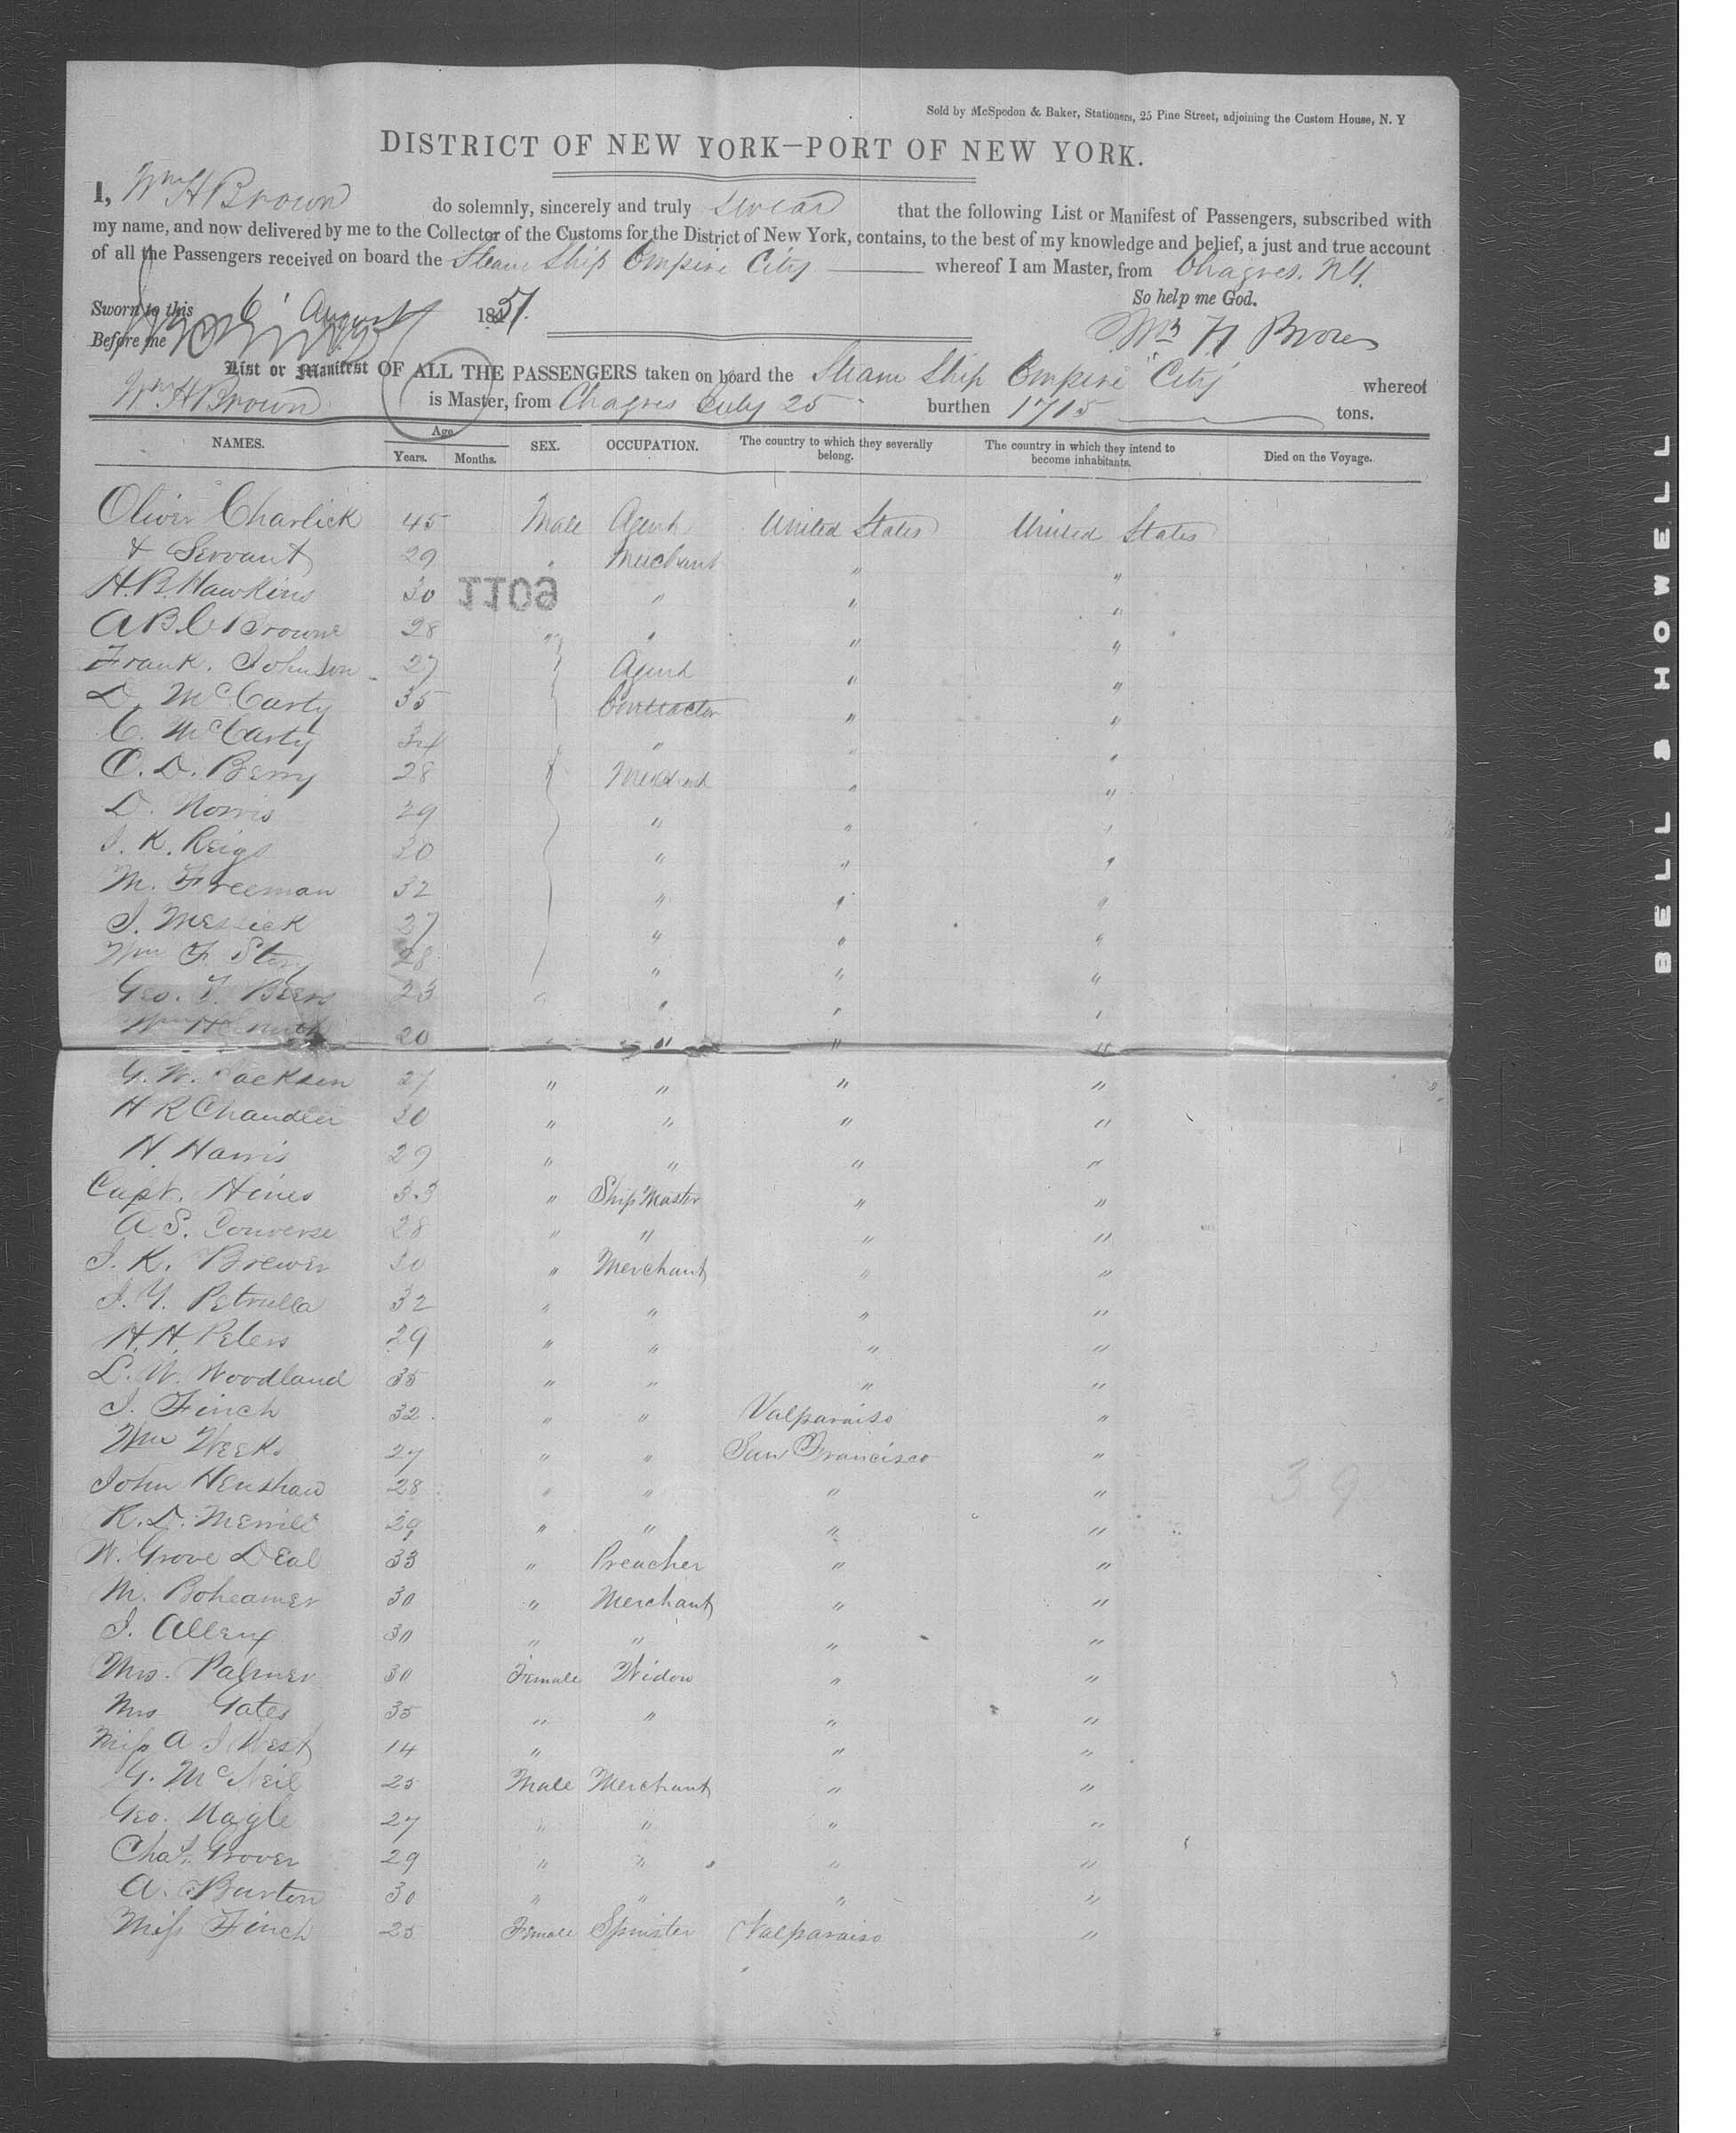 Sold by McSpedon & Baker, Stationers, 25 Pine Street, adjoining the Custom House, N. Y
DISTRICT OF NEW YORK—PORT OF NEW YORK.
I, Wm H Brown do solemnly, sincerely and truly swear that the following List or Manifest of Passengers, subscribed with
my name, and now delivered by me to the Collector of the Customs for the District of New York, contains, to the best of my knowledge and belief, a just and true account
of all the Passengers received on board the Steam Ship Empire City whereof I am Master, from Chagres. N.Y.
So help me God.
Sworn to this 6 August 1851.
Before me Wm H Brown
List or Manifest OF ALL THE PASSENGERS taken on board the Steam Ship Empire City whereof
Wm H Brown is Master, from Chagres July 25 burthen 1715 tons.
NAMES. Age SEX. OCCUPATION. The country to which they severally belong. The country in which they intend to become inhabitants. Died on the Voyage.
Years. Months.
Oliver Charlick 45 Male Agent United States United States
& Servant 29 " Merchant " "
H. B. Hawkins 30 " " "
1109
A B C Browne 28 " " " "
Frank. Johnson 27 Agent " "
D. McCarty 35 Contractor " "
C. McCarty 34 " " "
C. D. Berry 28 Merchant " "
D. Norris 29 " " "
J. K. Reigs 30 " " "
M. Freeman 32 " " "
J. Messick 27 " " "
Wm F. Story 28 " " "
Geo. T. Beers 23 " " " "
Wm H Smith 20 " " " "
G. W. Jackson 27 " " " "
H R Chandler 30 " " " "
H Harris 29 " " " "
Capt. Hines 33 " Ship Master " "
A S. Converse 28 " " " "
J. K. Brewer 30 " Merchant " "
J. Y. Petrulla 32 " " " "
H. H. Peters 29 " " " "
L. W. Woodland 35 " " " "
J. Finch 32 " " Valparaiso "
Wm Weeks 27 " " San Francisco "
John Henshaw 28 " " " "
39
R. D. Merrill 29 " " " "
W. Grove Deal 33 " Preacher " "
M. Boheamer 30 " Merchant " "
J. Alleng 30 " " " "
Mrs. Palmer 30 Female Widow " "
Mrs Gates 35 " " " "
Miss A J West 14 " " "
G. McNeil 25 Male Merchant " "
Geo. Nagle 27 " " " "
Chas. Grover 29 " " " "
A. Burton 30 " " " "
Miss Finch 25 Female Spinster Valparaiso "
BELL & HOWELL